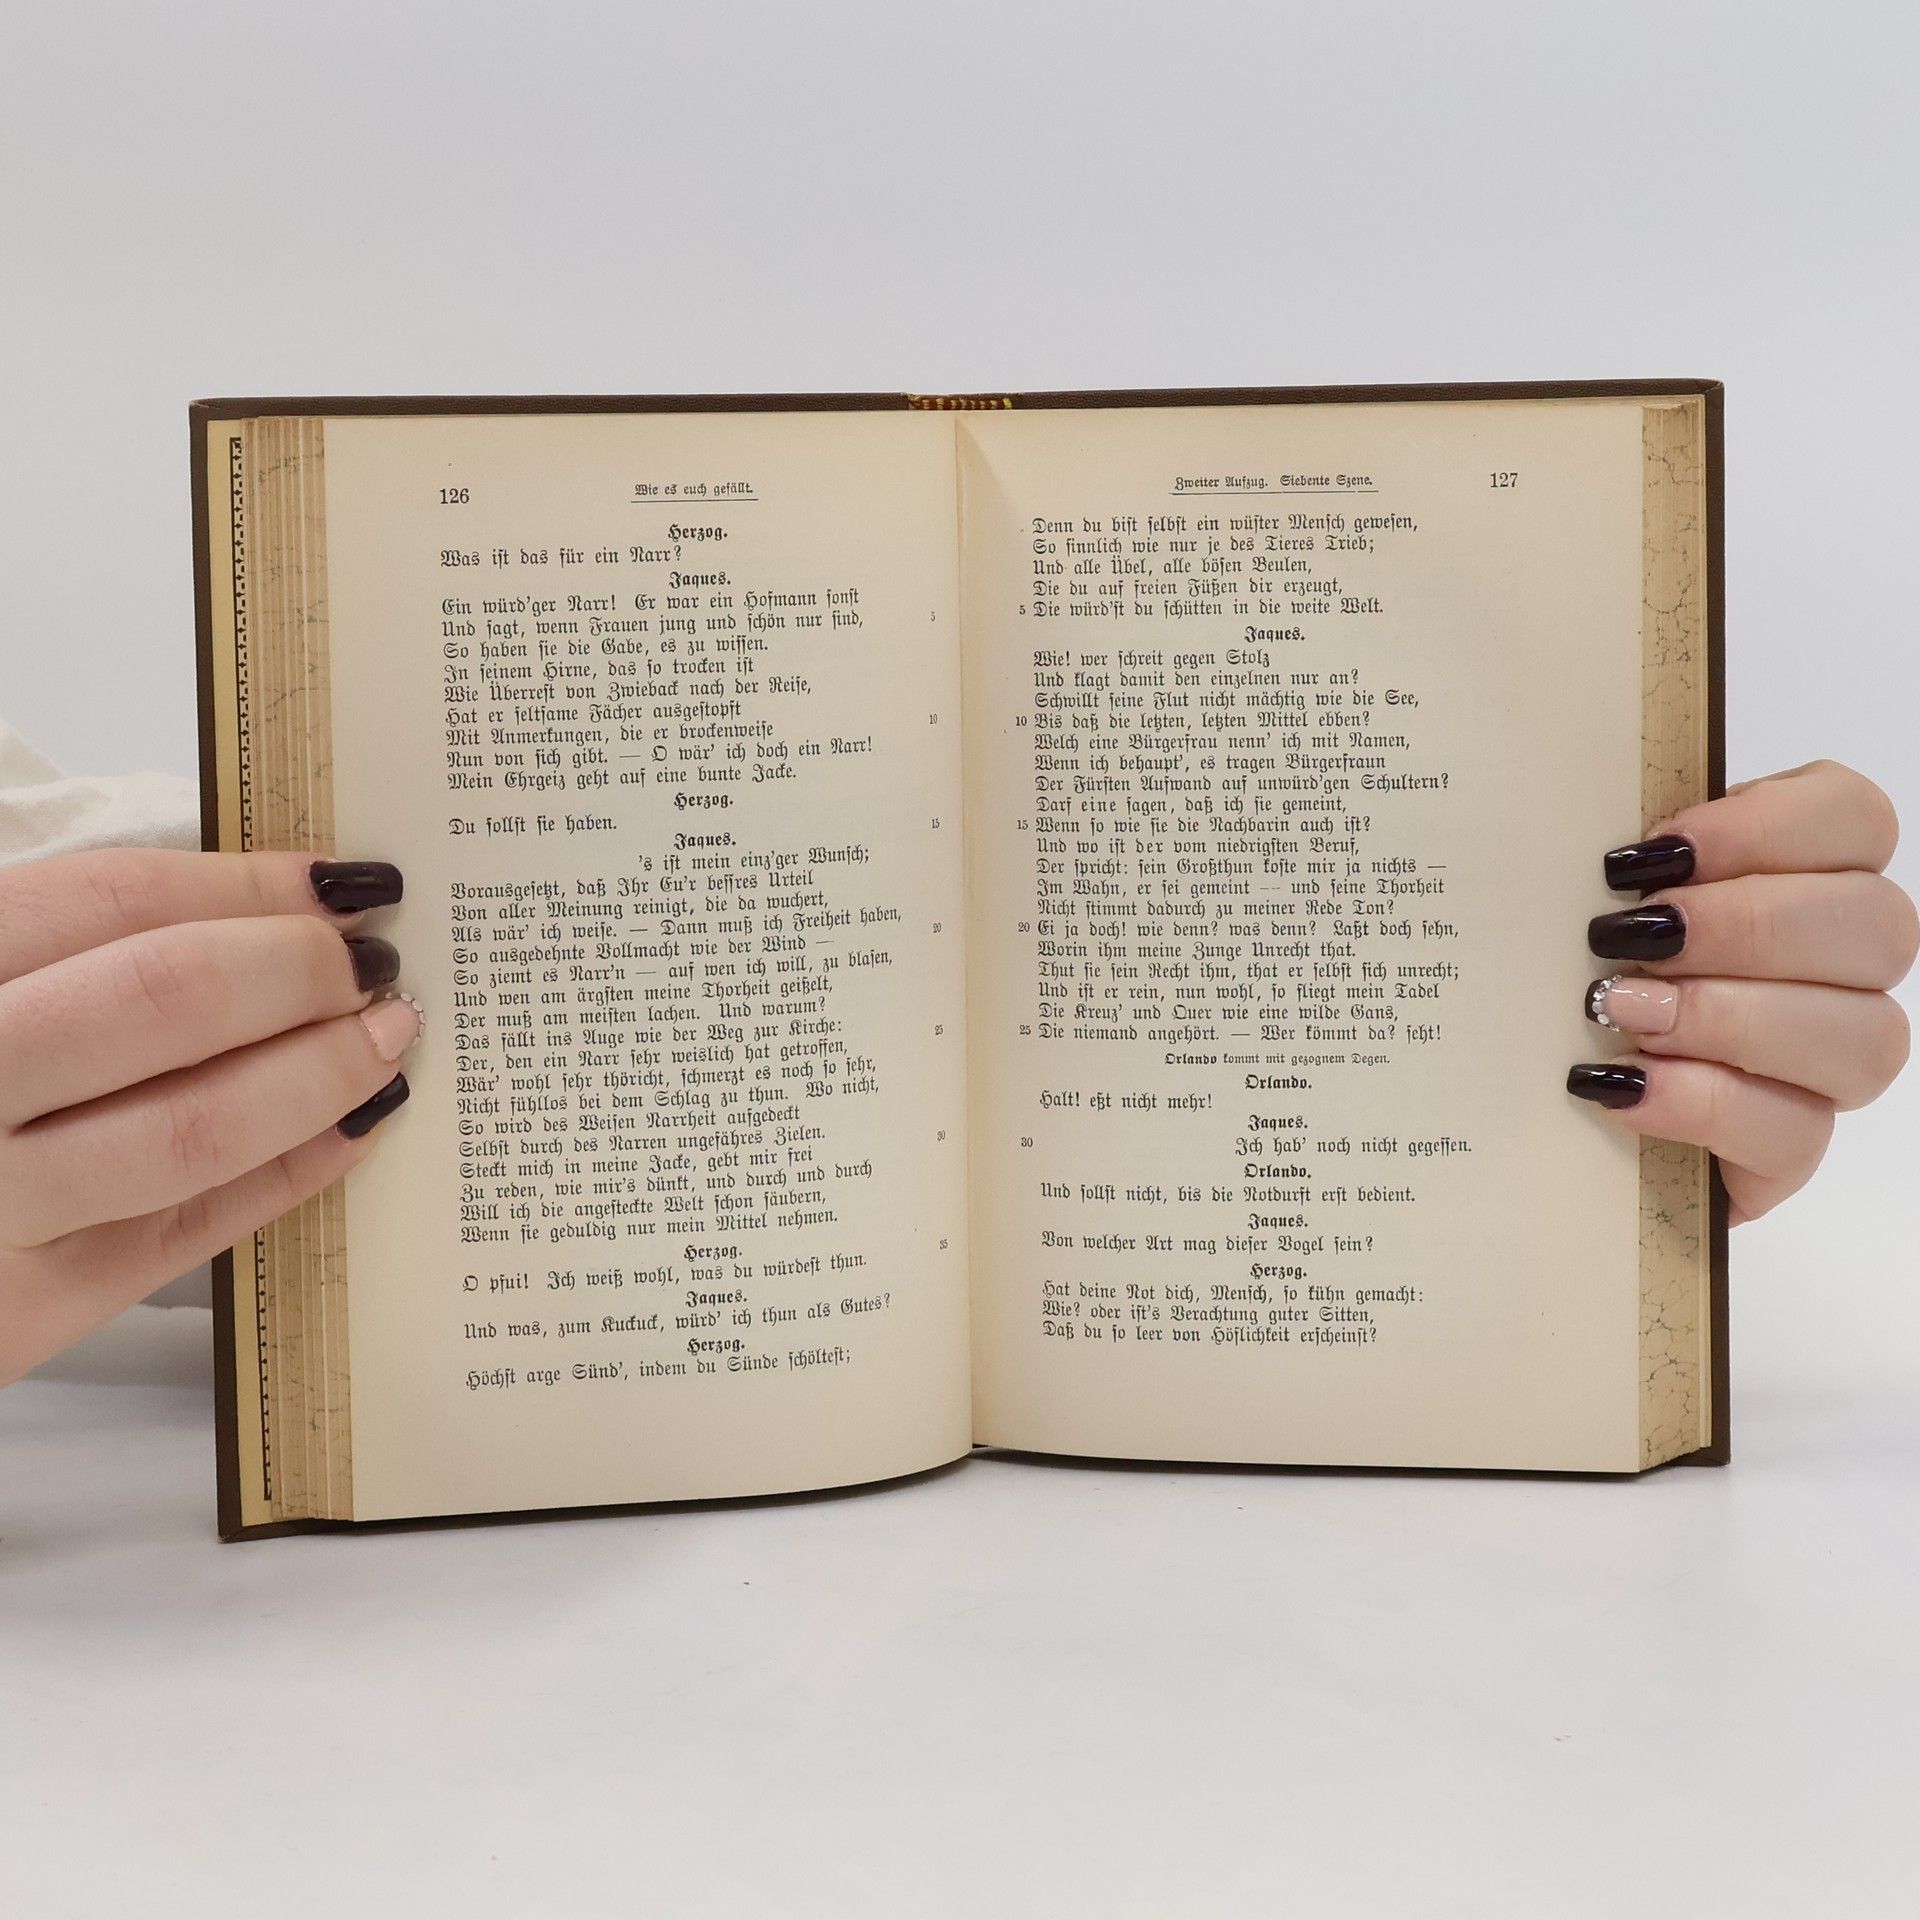 126
Wie es euch gefällt.
Herzog.
Was ist das für ein Narr?
Jaques.
Ein würd'ger Narr! Er war ein Hofmann sonst
Und sagt, wenn Frauen jung und schön nur sind,
5
So haben sie die Gabe, es zu wissen.
In seinem Hirne, das so trocken ist
Wie Überrest von Zwieback nach der Reise,
Hat er seltsame Fächer ausgestopft
Mit Anmerkungen, die er brockenweise
10
Nun von sich gibt. — O wär' ich doch ein Narr!
Mein Ehrgeiz geht auf eine bunte Jacke.
Herzog.
Du sollst sie haben.
Jaques.
15
's ist mein einz'ger Wunsch;
Vorausgesetzt, daß Ihr Eu'r bessres Urteil
Von aller Meinung reinigt, die da wuchert,
Als wär' ich weise. — Dann muß ich Freiheit haben,
So ausgedehnte Vollmacht wie der Wind —
20
So ziemt es Narr'n — auf wen ich will, zu blasen,
Und wen am ärgsten meine Thorheit geißelt,
Der muß am meisten lachen. Und warum?
Das fällt ins Auge wie der Weg zur Kirche:
Der, den ein Narr sehr weislich hat getroffen,
25
Wär' wohl sehr thöricht, schmerzt es noch so sehr,
Nicht fühllos bei dem Schlag zu thun. Wo nicht,
So wird des Weisen Narrheit aufgedeckt
Selbst durch des Narren ungefähres Zielen.
Steckt mich in meine Jacke, gebt mir frei
30
Zu reden, wie mir's dünkt, und durch und durch
Will ich die angesteckte Welt schon säubern,
Wenn sie geduldig nur mein Mittel nehmen.
Herzog.
O pfui! Ich weiß wohl, was du würdest thun.
35
Jaques.
Und was, zum Kuckuck, würd' ich thun als Gutes?
Herzog.
Höchst arge Sünd', indem du Sünde schöltest;
Zweiter Aufzug. Siebente Szene.
127
Denn du bist selbst ein wüster Mensch gewesen,
So sinnlich wie nur je des Tieres Trieb;
Und alle Übel, alle bösen Beulen,
Die du auf freien Füßen dir erzeugt,
5 Die würd'st du schütten in die weite Welt.
Jaques.
Wie! wer schreit gegen Stolz
Und klagt damit den einzelnen nur an?
Schwillt seine Flut nicht mächtig wie die See,
10 Bis daß die letzten, letzten Mittel ebben?
Welch eine Bürgerfrau nenn' ich mit Namen,
Wenn ich behaupt', es tragen Bürgerfraun
Der Fürsten Aufwand auf unwürd'gen Schultern?
Darf eine sagen, daß ich sie gemeint,
15 Wenn so wie sie die Nachbarin auch ist?
Und wo ist der vom niedrigsten Beruf,
Der spricht: sein Großthun koste mir ja nichts —
Im Wahn, er sei gemeint — und seine Thorheit
Nicht stimmt dadurch zu meiner Rede Ton?
20 Ei ja doch! wie denn? was denn? Laßt doch sehn,
Worin ihm meine Zunge Unrecht that.
Thut sie sein Recht ihm, that er selbst sich unrecht;
Und ist er rein, nun wohl, so fliegt mein Tadel
Die Kreuz' und Quer wie eine wilde Gans,
25 Die niemand angehört. — Wer kömmt da? seht!
Orlando kommt mit gezognem Degen.
Orlando.
Halt! eßt nicht mehr!
Jaques.
30 Ich hab' noch nicht gegessen.
Orlando.
Und sollst nicht, bis die Notdurft erst bedient.
Jaques.
Von welcher Art mag dieser Vogel sein?
Herzog.
Hat deine Not dich, Mensch, so kühn gemacht:
Wie? oder ist's Verachtung guter Sitten,
Daß du so leer von Höflichkeit erscheinst?